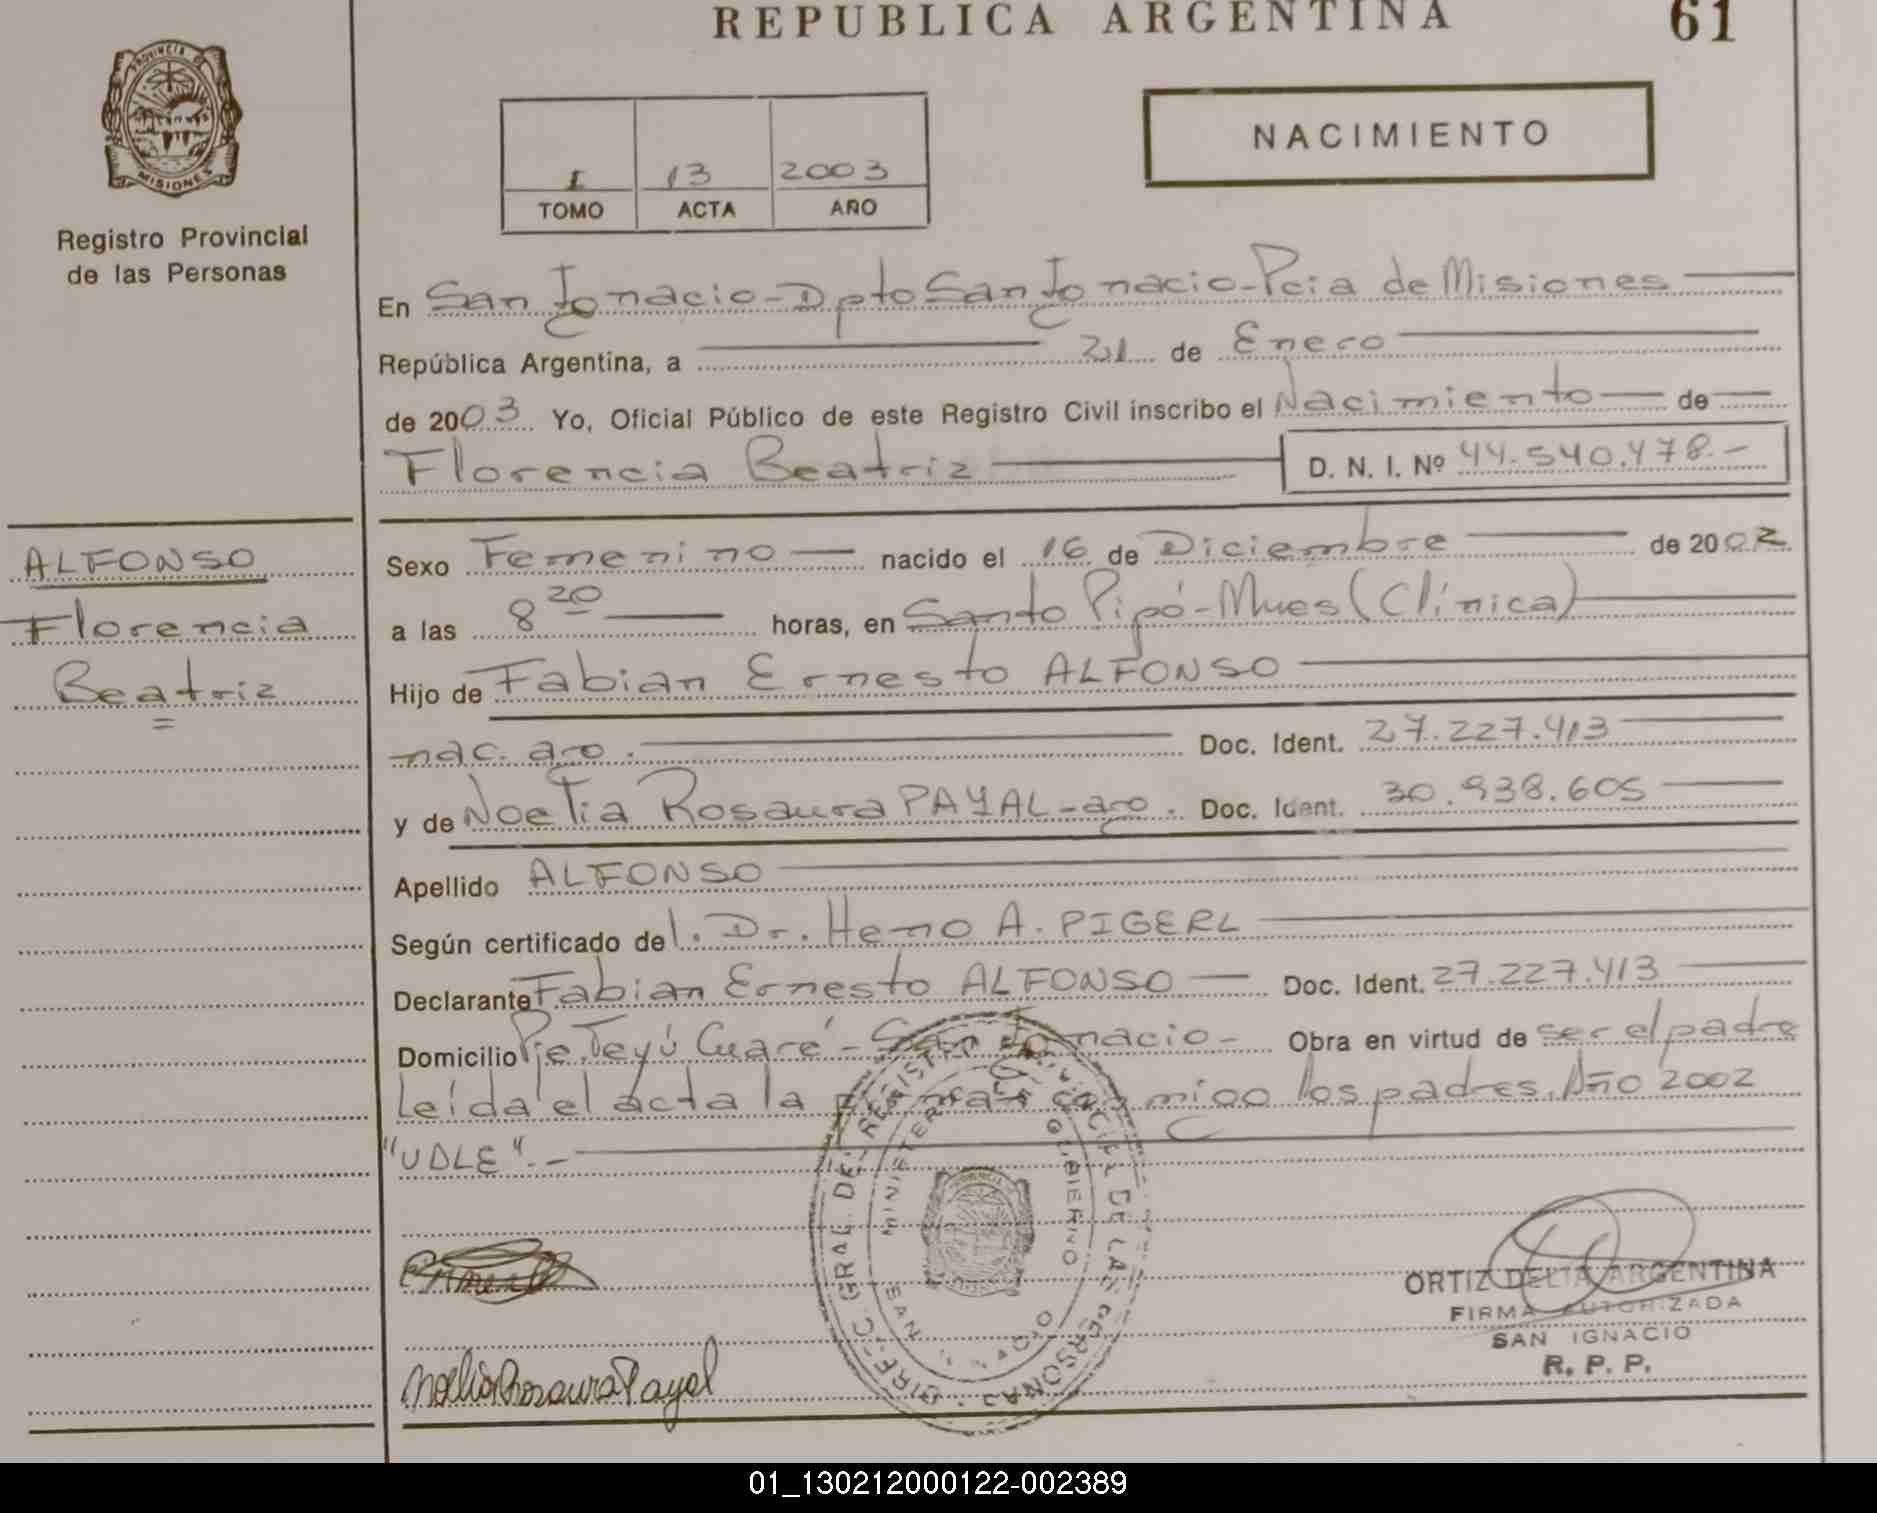 REPUBLICA ARGENTINA
61
PROVINCIA DE
MISIONES
Registro Provincial
de las Personas
I 13 2003
TOMO ACTA AÑO
NACIMIENTO
En San Ignacio-Dpto San Ignacio-Pcia de Misiones
República Argentina, a 21 de Enero
de 2003. Yo, Oficial Público de este Registro Civil inscribo el Nacimiento de
Florencia Beatriz D. N. I. Nº 44.540.478.-
ALFONSO
Florencia
Beatriz
Sexo Femenino nacido el 16 de Diciembre de 2002
a las 8 20 horas, en Santo Pipó-Mnes (Clínica)
Hijo de Fabian Ernesto ALFONSO
nac. ago. Doc. Ident. 27.227.413
y de Noelia Rosaura PAYAL-ago. Doc. Ident. 30.938.605
Apellido ALFONSO
Según certificado del. Dr. Heno A. PIGERL
Declarante Fabian Ernesto ALFONSO Doc. Ident. 27.227.413
Domicilio Pje. Teyú Cuaré - San Ignacio - Obra en virtud de ser el padre
Leída el acta la firman conmigo los padres. Año 2002
"VDLE".-
DIREC. GRAL. DEL REGISTRO PROVINCIAL DE LAS PERSONAS
MINISTERIO DE GOBIERNO
SAN IGNACIO
Noelia Rosaura Payal
ORTIZ DELIA ARGENTINA
FIRMA AUTORIZADA
SAN IGNACIO
R. P. P.
01_130212000122-002389